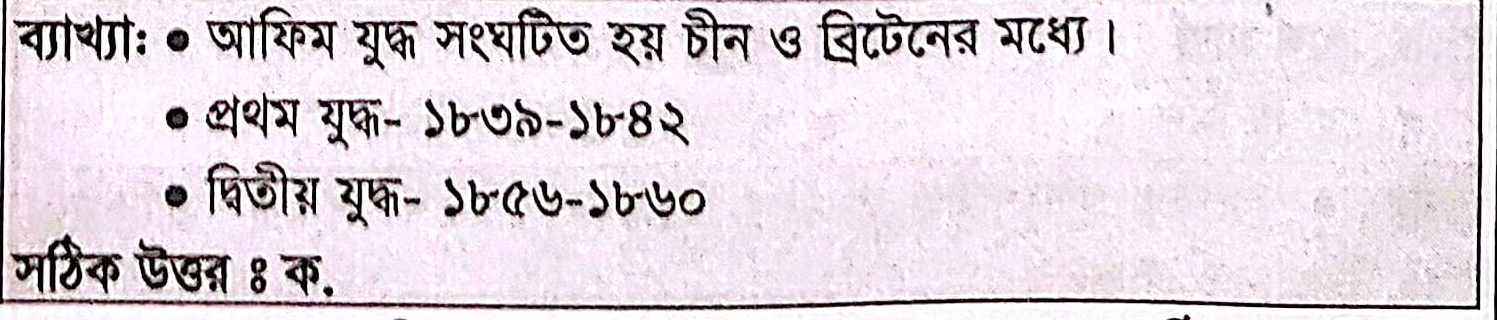 ব্যাখ্যা: ● আফিম যুদ্ধ সংঘটিত হয় চীন ও ব্রিটেনের মধ্যে।
● প্রথম যুদ্ধ- ১৮৩৯-১৮৪২
● দ্বিতীয় যুদ্ধ- ১৮৫৬-১৮৬০
সঠিক উত্তর ঃ ক.